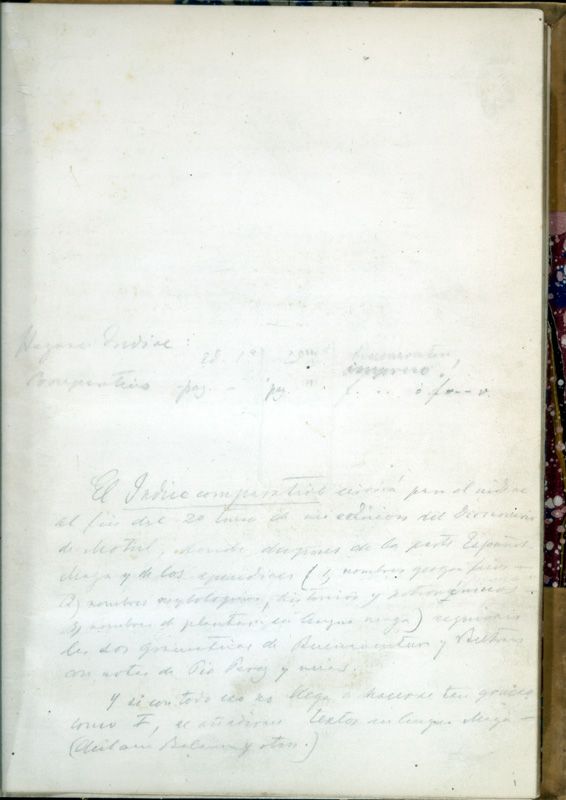 Hagase Indice :
ed. 1ª
comparativo pag. — pag. " f. . . ó f. — v.
impreso,
El Indice comparativo servirá para el indice
al fin del 2º tomo de mi edicion del Diccionario
de Motul, donde despues de la parte Español-
Maya y de los apendices (1) nombres geograficos —
2) nombres mythologicos, historicos y astronómicos
3) nombres de plantas en lengua maya) seguirán
las dos gramaticas de Buenaventura y Beltran
con notas de Pio Perez y mias.
Y si con todo eso no llega a hacerse tan grueso
como I, se añadirán textos en lengua Maya —
(Chilam Balam y otros.)